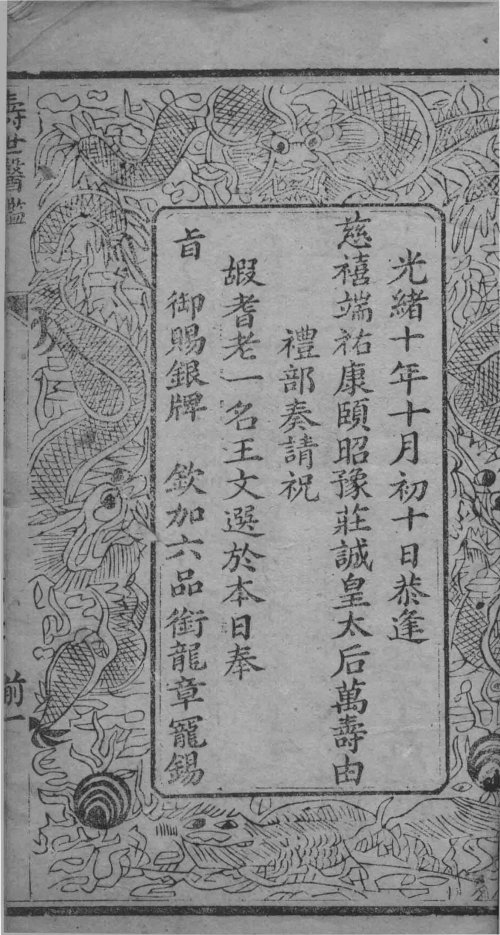 光緒十年十月初十日恭逢
慈禧端祐康頤昭豫莊誠皇太后萬壽由
禮部奏請祝
嘏耆老一名王文選於本日奉
旨　御賜銀牌　欽加六品銜龍章寵錫
壽世醫鑑
前一